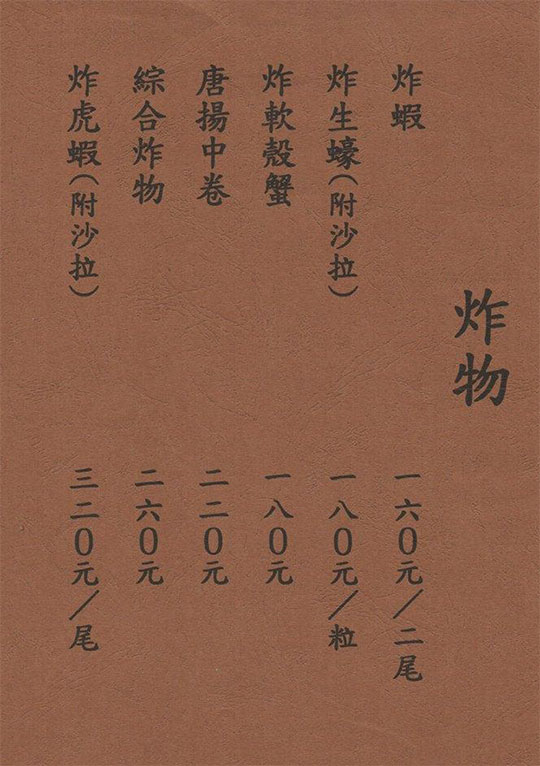 炸物
炸蝦 一六0元／二尾
炸生蠔（附沙拉） 一八0元／粒
炸軟殼蟹 一八0元
唐揚中卷 二二0元
綜合炸物 二六0元
炸虎蝦（附沙拉） 三二0元／尾